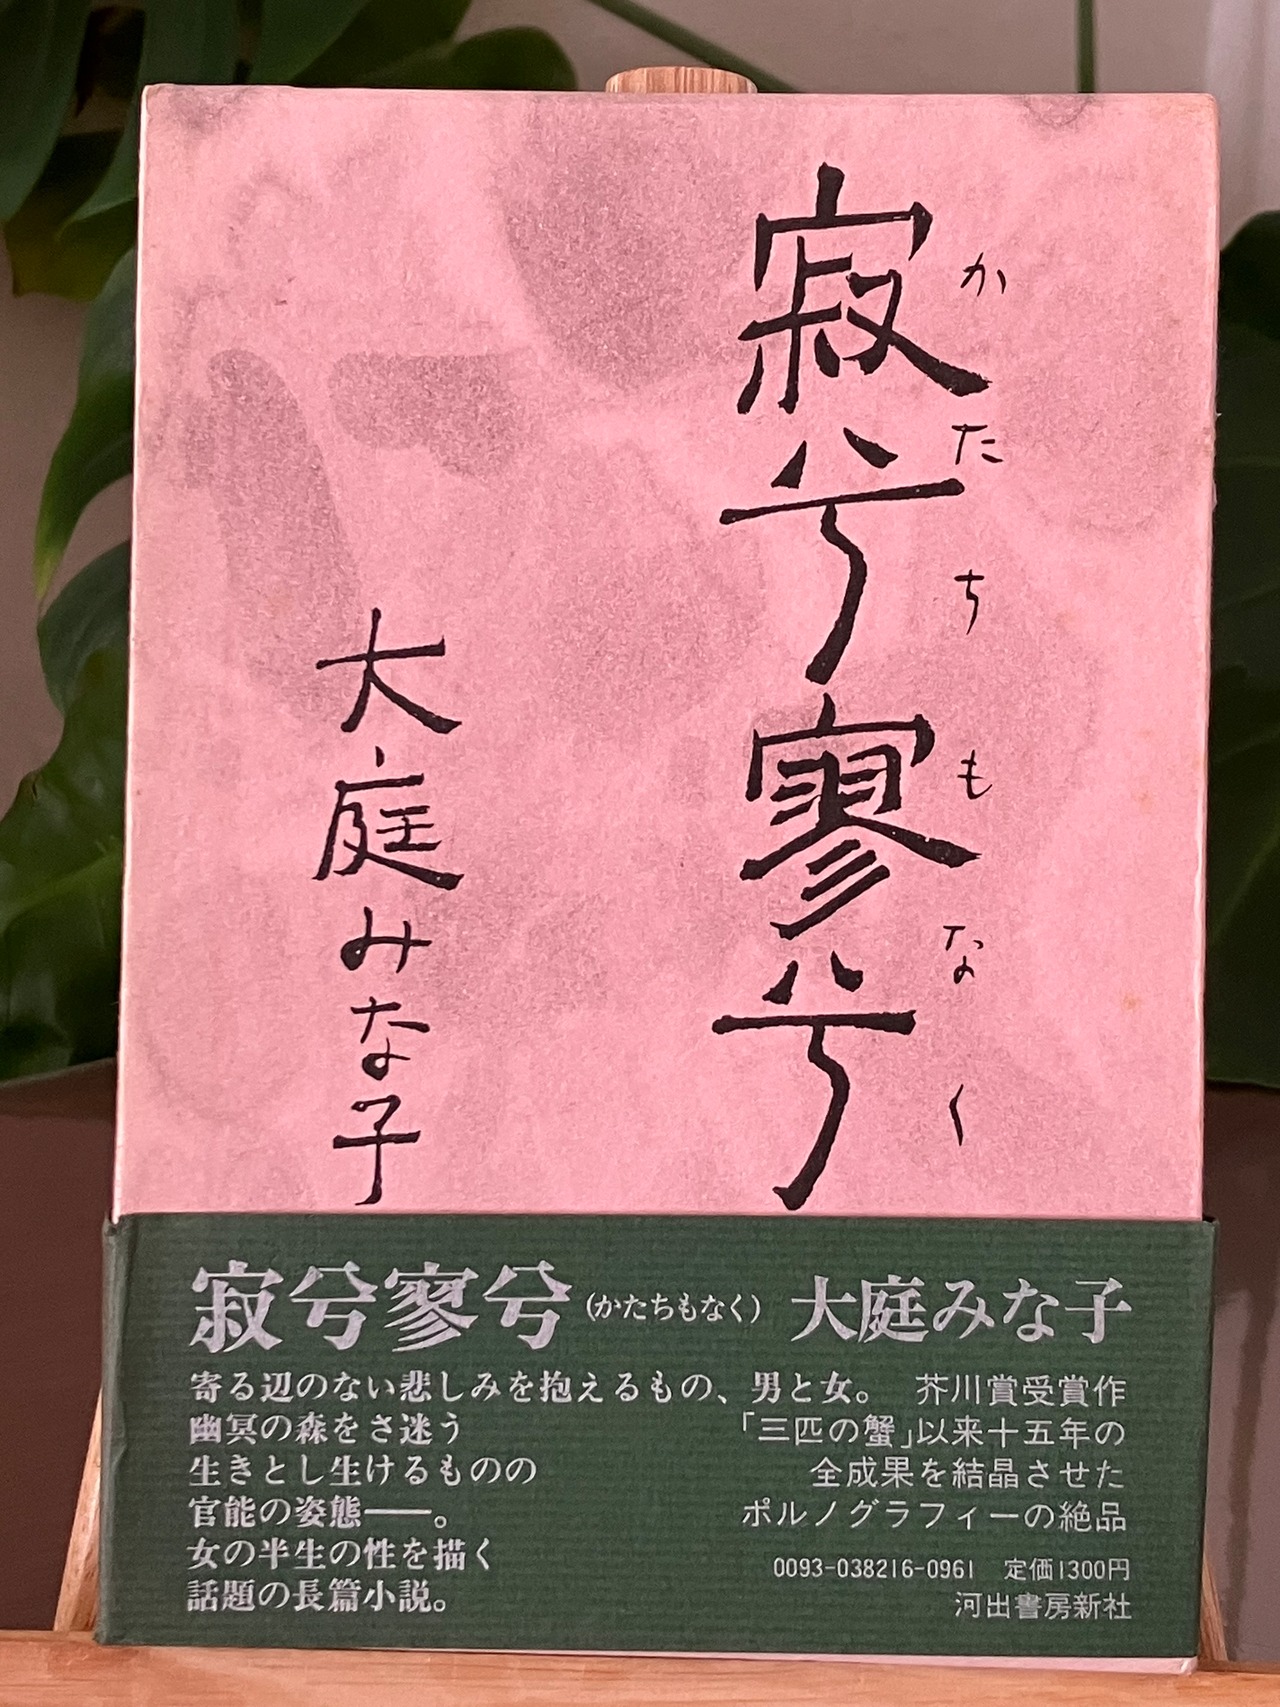 寂兮寥兮
かたちもなく
大庭みな子
寂兮寥兮（かたちもなく） 大庭みな子
寄る辺のない悲しみを抱えるもの、男と女。
幽冥の森をさ迷う
生きとし生けるものの
官能の姿態——。
女の半生の性を描く
話題の長篇小説。
芥川賞受賞作
「三匹の蟹」以来十五年の
全成果を結晶させた
ポルノグラフィーの絶品
0093-038216-0961 定価1300円
河出書房新社